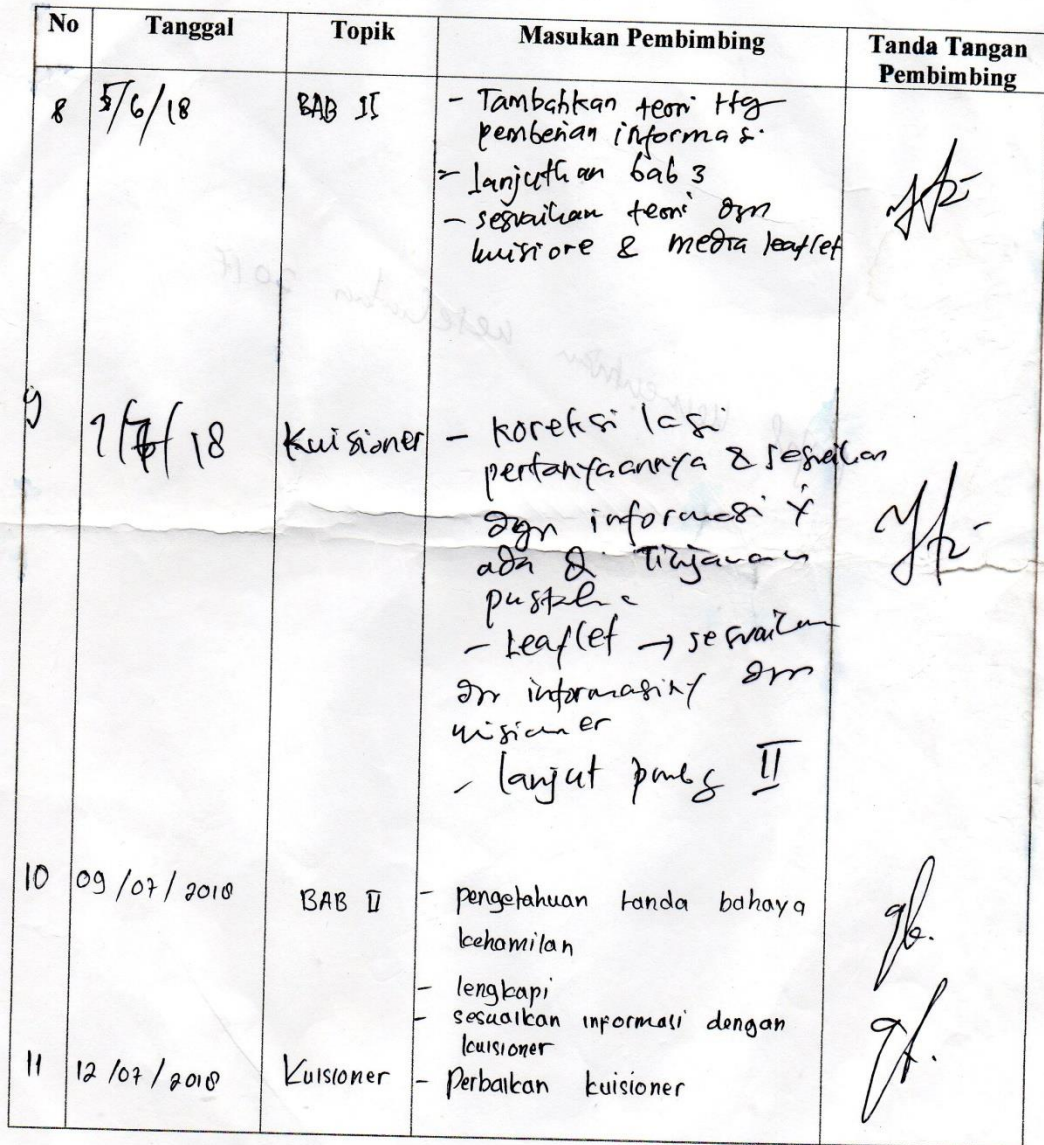 No Tanggal Topik Masukan Pembimbing Tanda Tangan Pembimbing
8 5/6/18 BAB II - Tambahkan teori ttg
pemberian informasi.
- lanjutkan bab 3
- sesuaikan teori dgn
kuisiore & media leaflet
9 /18 Kuisioner - koreksi lagi
pertanyaannya & sesuaikan
dgn informasi y
ada & Tinjauan
pustaka
- Leaflet → sesuaikan
dn informasiny dgn
kuisioner
- lanjut pmbg II
10 09/07/2018 BAB II - pengetahuan tanda bahaya
kehamilan
- lengkapi
- sesuaikan informasi dengan
kuisioner
11 12/07/2018 Kuisioner - Perbaikan kuisioner